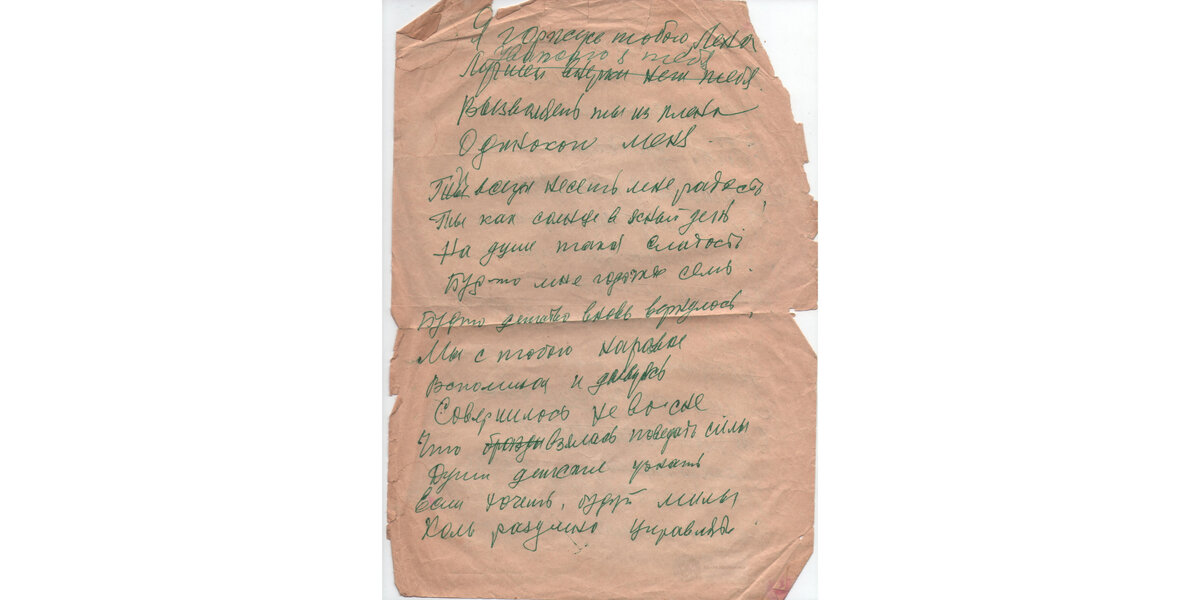 Я горжусь тобою, Лена
тебя
Лучшей внучки нет тебя.
Вызволяешь ты из плена
Одинокой меня
Ты всегда несешь мне радость,
Ты как солнце в ясный день
На душе такая сладость
Будто мне годочков семь.
Будто детство вновь вернулось,
Мы с тобою наравне
Вспоминая и
Совершилось не во сне
Что бразды взялась поведать силы
Души детские узнать
Если хочешь, будут милы
Коль разумно управлять.